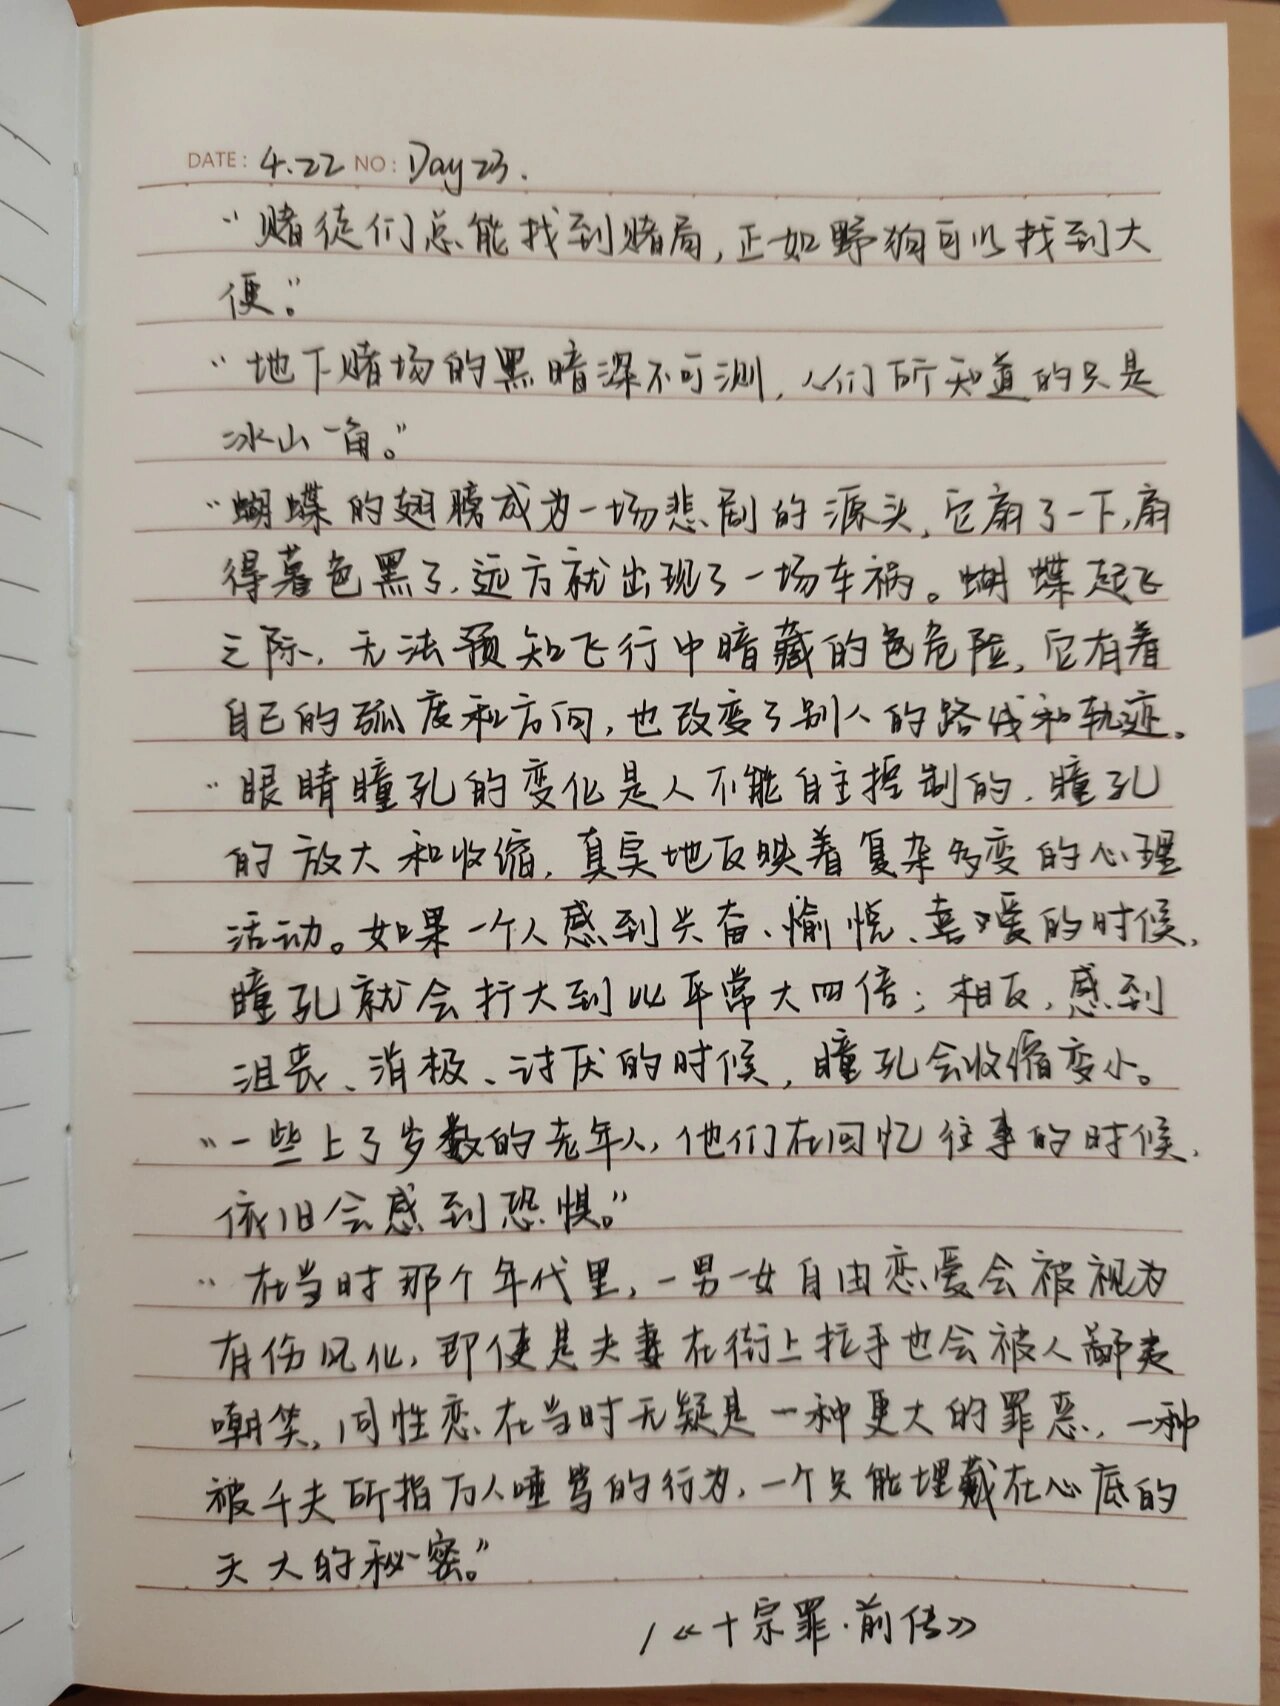 DATE: 4.22 NO: Day 23.
“赌徒们总能找到赌局，正如野狗可以找到大
便。”
“地下赌场的黑暗深不可测，人们所知道的只是
冰山一角。”
“蝴蝶的翅膀成为一场悲剧的源头，它扇了一下，扇
得暮色黑了，远方就出现了一场车祸。蝴蝶起飞
之际，无法预知飞行中暗藏的危险，它有着
自己的弧度和方向，也改变了别人的路线和轨迹。
“眼睛瞳孔的变化是人不能自主控制的，瞳孔
的放大和收缩，真实地反映着复杂多变的心理
活动。如果一个人感到兴奋、愉悦、喜爱的时候，
瞳孔就会扩大到比平常大四倍；相反，感到
沮丧、消极、讨厌的时候，瞳孔会收缩变小。
“一些上了岁数的老年人，他们在回忆往事的时候，
依旧会感到恐惧。”
“在当时那个年代里，一男一女自由恋爱会被视为
有伤风化，即使是夫妻在街上拉手也会被人鄙夷
嘲笑，同性恋在当时无疑是一种更大的罪恶，一种
被千夫所指万人唾骂的行为，一个只能埋藏在心底的
天大的秘密。”
/《十宗罪·前传》